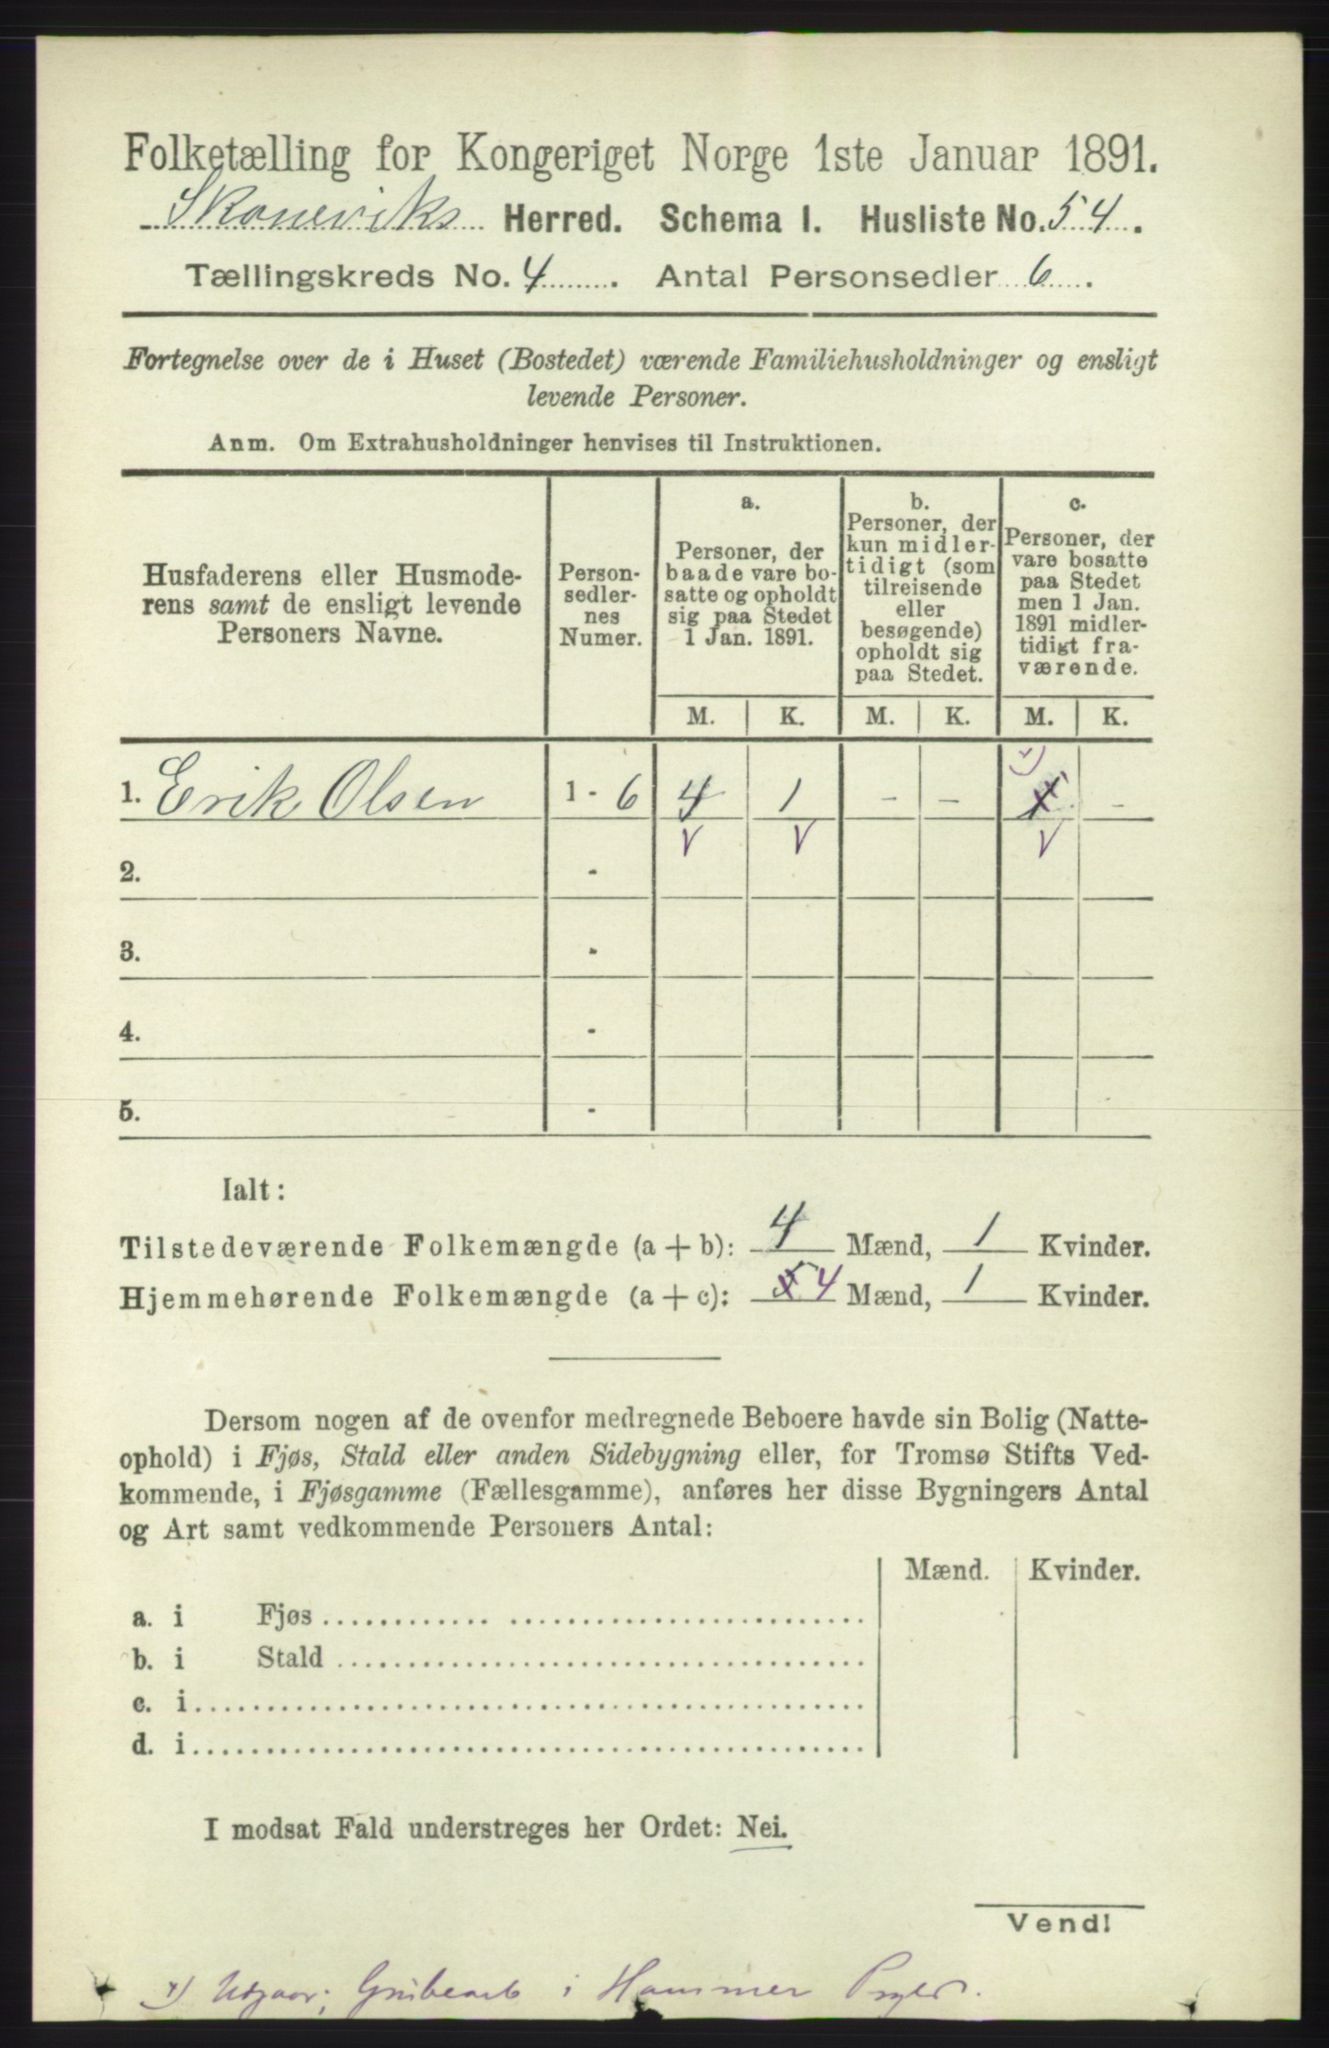 Folketælling for Kongeriget Norge 1ste Januar 1891.
Skoneviks Herred. Schema I. Husliste No. 54.
Tællingskreds No. 4. Antal Personsedler 6.
Fortegnelse over de i Huset (Bostedet) værende Familiehusholdninger og ensligt
levende Personer.
Anm. Om Extrahusholdninger henvises til Instruktionen.
Husfaderens eller Husmode-
rens samt de ensligt levende
Personers Navne.
Person-
sedler-
nes
Numer.
a.
Personer, der
baade vare bo-
satte og opholdt
sig paa Stedet
1 Jan. 1891.
b.
Personer, der
kun midler-
tidigt (som
tilreisende
eller
besøgende)
opholdt sig
paa Stedet.
c.
Personer, der
vare bosatte
paa Stedet
men 1 Jan.
1891 midler-
tidigt fra-
værende.
M. K. M. K. M. K.
1. Erik Olsen 1 - 6 4 1 - - 1 -
V V V
2. -
3. -
4. -
5. -
Ialt:
Tilstedeværende Folkemængde (a + b): 4 Mænd, 1 Kvinder.
Hjemmehørende Folkemængde (a + c): 5 4 Mænd, 1 Kvinder.
Dersom nogen af de ovenfor medregnede Beboere havde sin Bolig (Natte-
ophold) i Fjøs, Stald eller anden Sidebygning eller, for Tromsø Stifts Ved-
kommende, i Fjøsgamme (Fællesgamme), anføres her disse Bygningers Antal
og Art samt vedkommende Personers Antal:
Mænd. Kvinder.
a. i Fjøs
b. i Stald
c. i
d. i
I modsat Fald understreges her Ordet: Nei.
Vend!
Udgaar; Grubearb i Hammer Prgld.